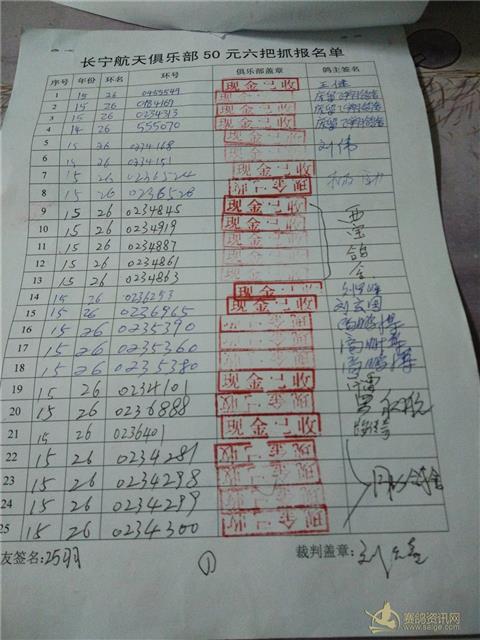 长宁航天俱乐部50元六把抓报名单
序号 年份 环名 环号 俱乐部盖章 鸽主签名
1 15 26 现金已收 王健
2 15 26 0184169 现金已收
3 15 26 0234313 现金已收
4 14 26 555070 现金已收
5 15 26 0234168 现金已收 刘伟
6 15 26 0234151 现金已收
7 15 26 0236524 现金已收
8 15 26 0236526 现金已收
9 15 26 0234845 现金已收
10 15 26 0234919 现金已收
11 15 26 0234887 现金已收
12 15 26 0234861 现金已收
13 15 26 0234863 现金已收
14 15 26 0236293 现金已收
15 15 26 0236965 现金已收
16 15 26 0235390 现金已收 高鹏博
17 15 26 0235360 现金已收 高鹏博
18 15 26 0235380 现金已收 高鹏博
19 15 26 0234101 现金已收
20 15 26 0236888 现金已收
21 15 26 0236401 现金已收
22 15 26 0234281 现金已收
23 15 26 0234298 现金已收
24 15 26 0234299 现金已收
25 15 26 0234300 现金已收
友签名:25羽 ① 裁判盖章:
赛鸽资讯网
www.saige.com